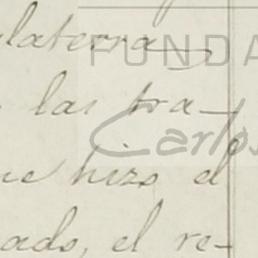 laterra
FUNDA
las tra-
Carlos
ue hizo el
ado, el re-